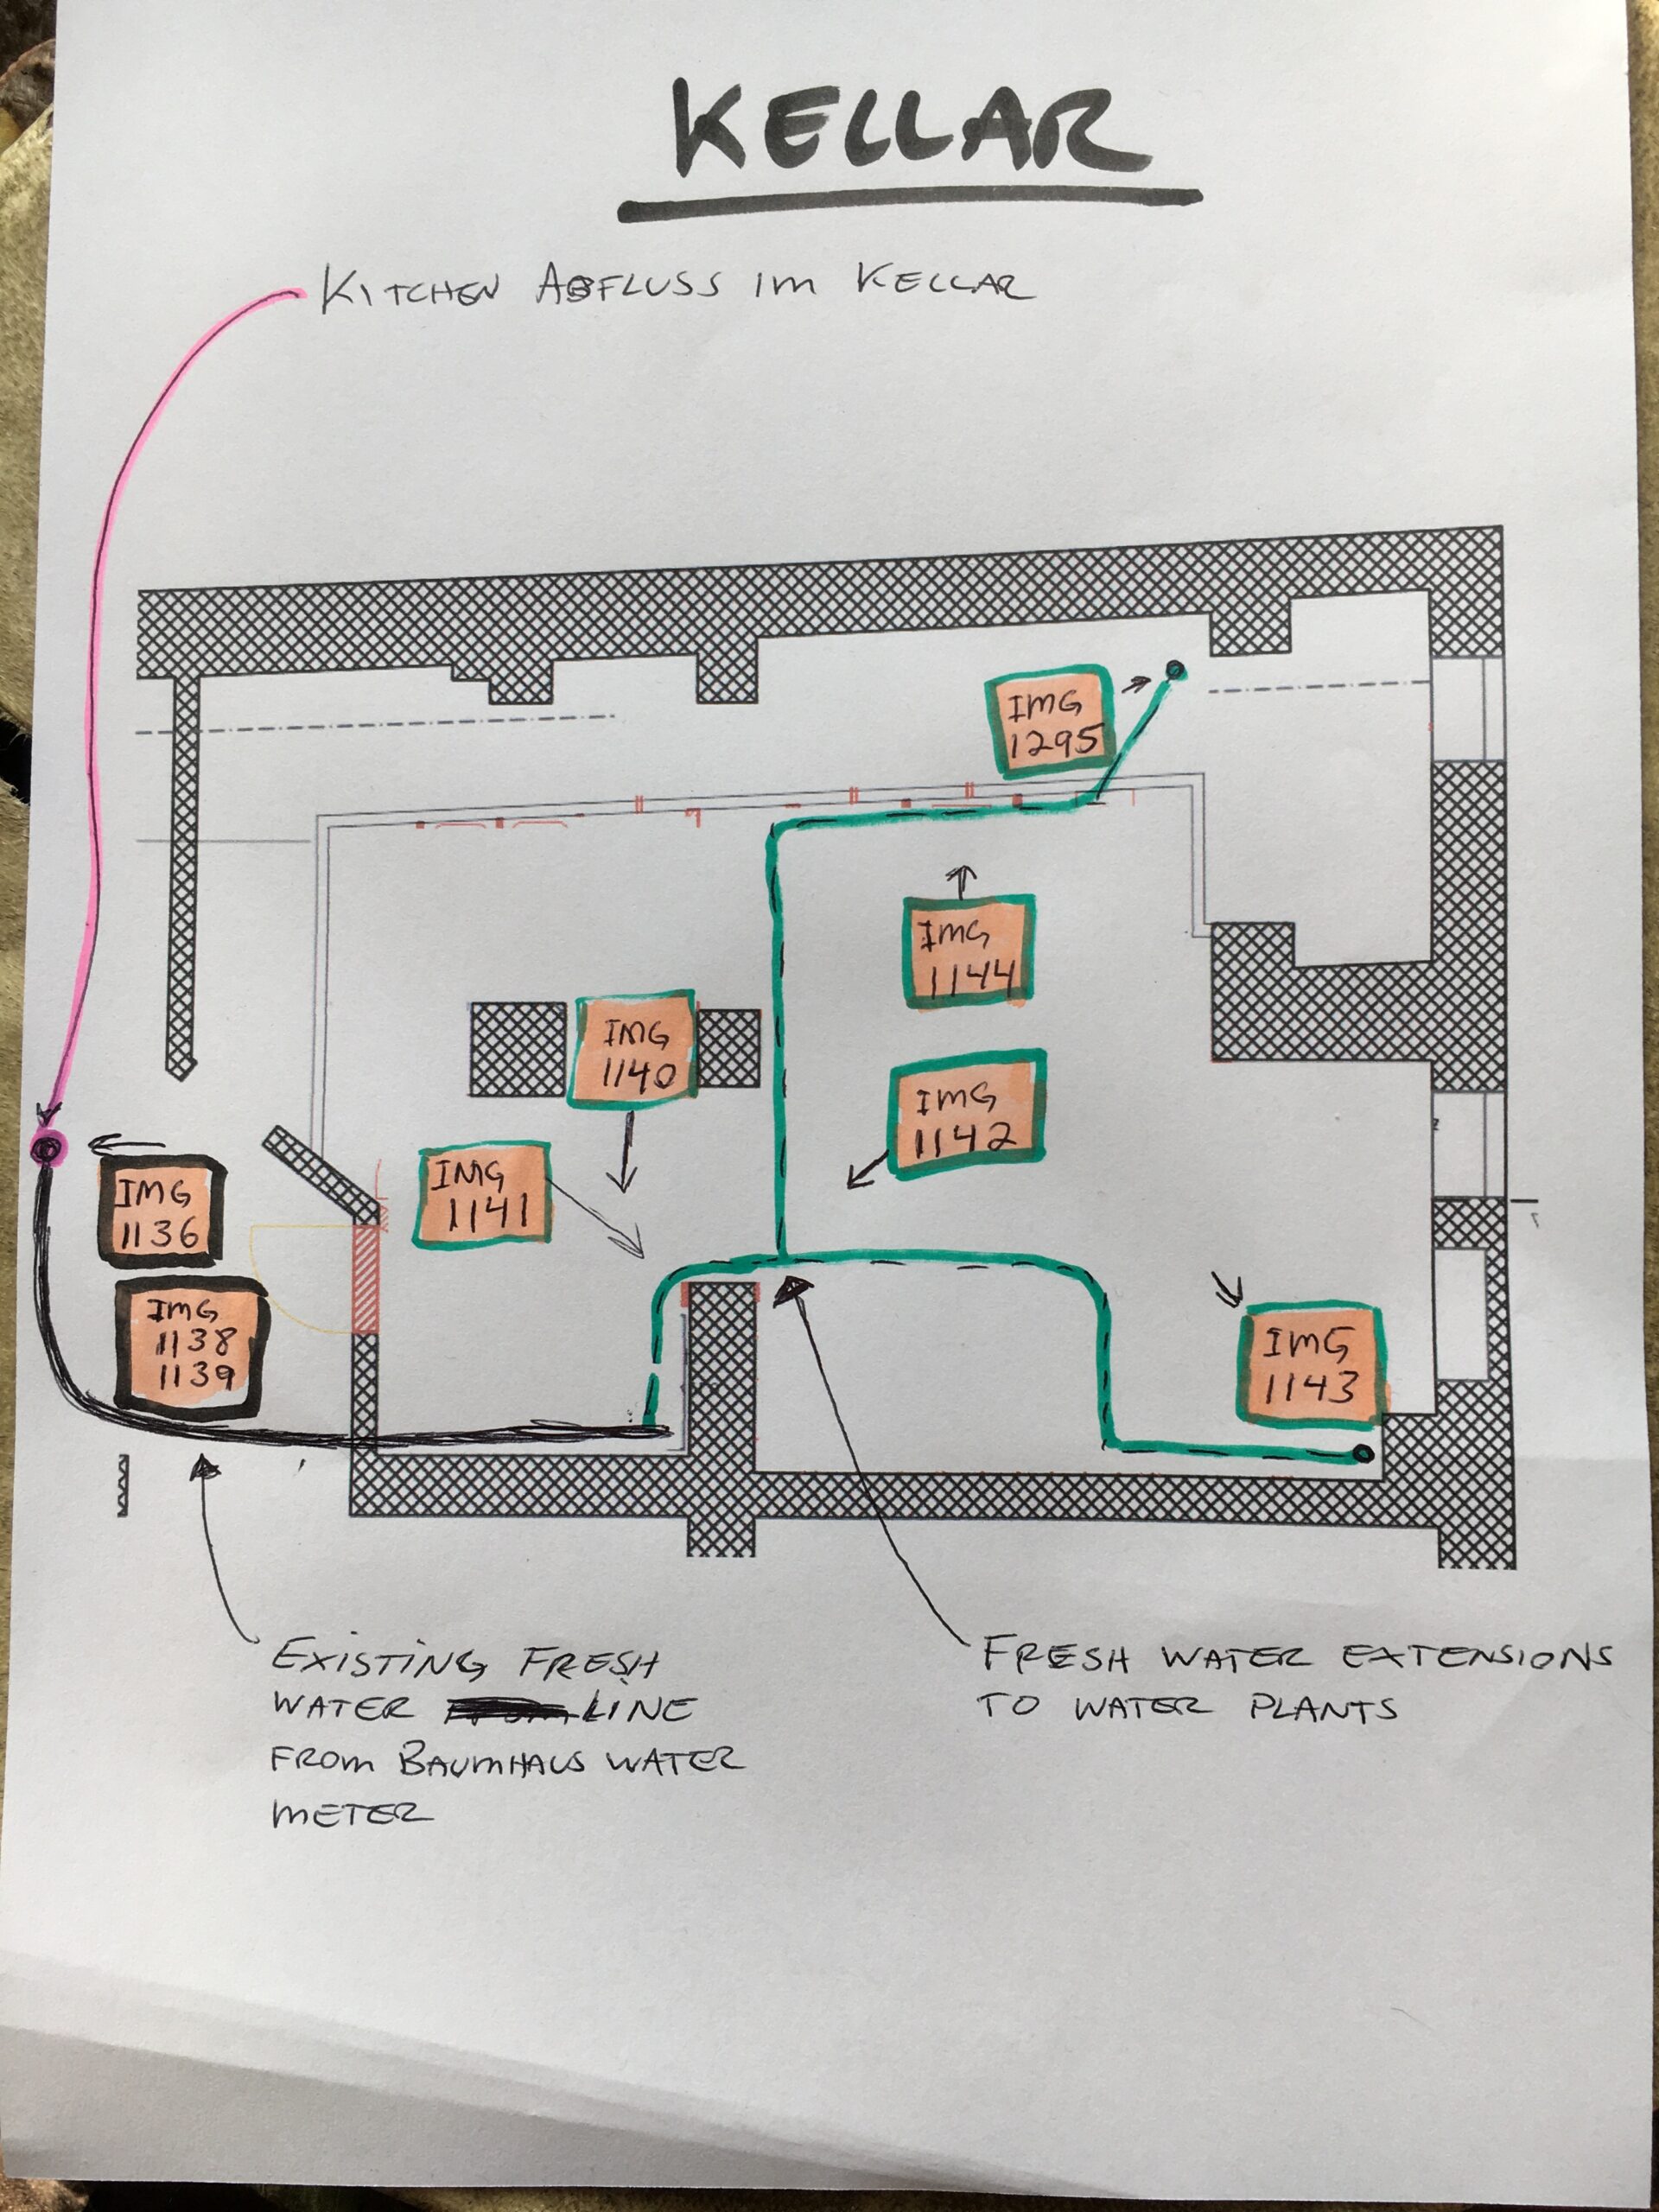 KELLAR
KITCHEN ABFLUSS IM KELLAR
IMG
1295
IMG
1144
IMG
1140
IMG
1142
IMG
1141
IMG
1136
IMG
1138
1139
IMG
1143
EXISTING FRESH
WATER LINE
FROM BAUMHAUS WATER
METER
FRESH WATER EXTENSIONS
TO WATER PLANTS